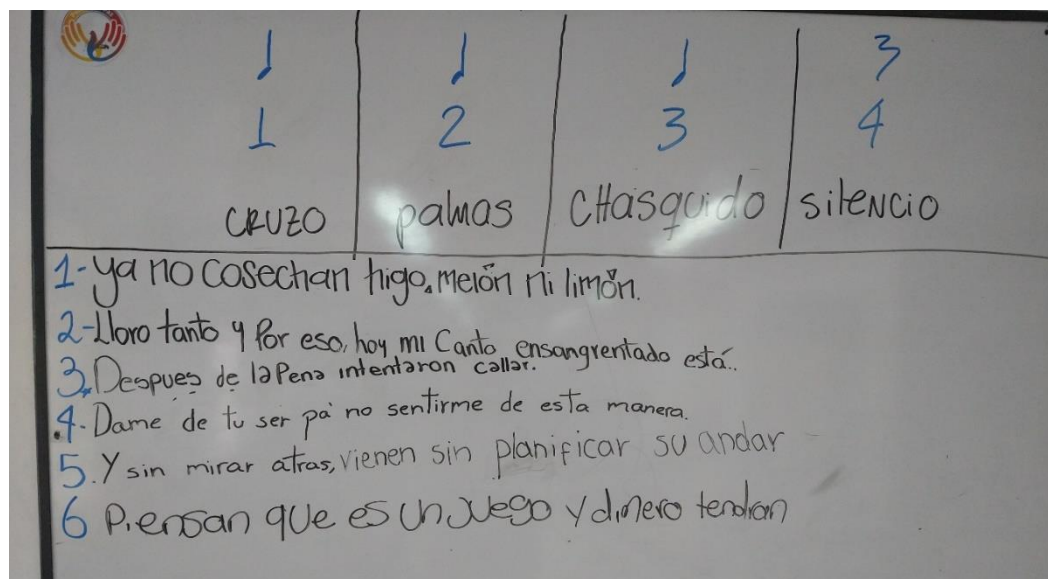 ♩ ♩ ♩ 𝄽
1 2 3 4
CRUZO palmas CHasquido silencio
1-ya no cosechan higo, melón ni limón.
2-Lloro tanto y Por eso, hoy mi Canto ensangrentado está..
3. Despues de la Pena intentaron callar.
4. Dame de tu ser pa' no sentirme de esta manera.
5. Y sin mirar atras, vienen sin planificar su andar
6 Piensan que es un Juego y dinero tendran